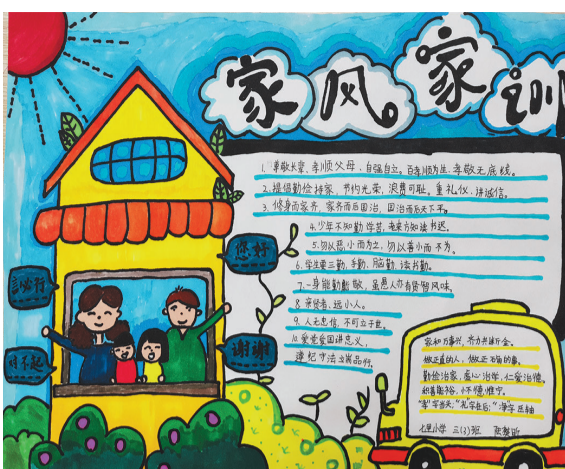 家风家训
1.尊敬长辈,孝顺父母,自强自立。百孝顺为先,孝敬无底线。
2.提倡勤俭持家,节约光荣,浪费可耻。重礼仪,讲诚信。
3.修身而家齐,家齐而后国治,国治而后天下平。
4.少年不知勤学苦,老来方知读书迟。
5.勿以恶小而为之,勿以善小而不为。
6.学生要三勤,手勤、脑勤、读书勤。
7.一身能勤能敬,虽愚人亦有贤智风味。
8.亲贤者、远小人。
9.人无忠信,不可立于世。
10.爱党爱国讲忠义,
遵纪守法立美品行。
您好
言必行
对不起
谢谢
家和万事兴,齐力共断金。
做正直的人,做正确的事。
勤俭治家,虚心治学,仁爱治性。
和善勤谷,小不懂懒宁。
"孝"字当天,"礼"字在后,"净"字
七里小学 三(3)班